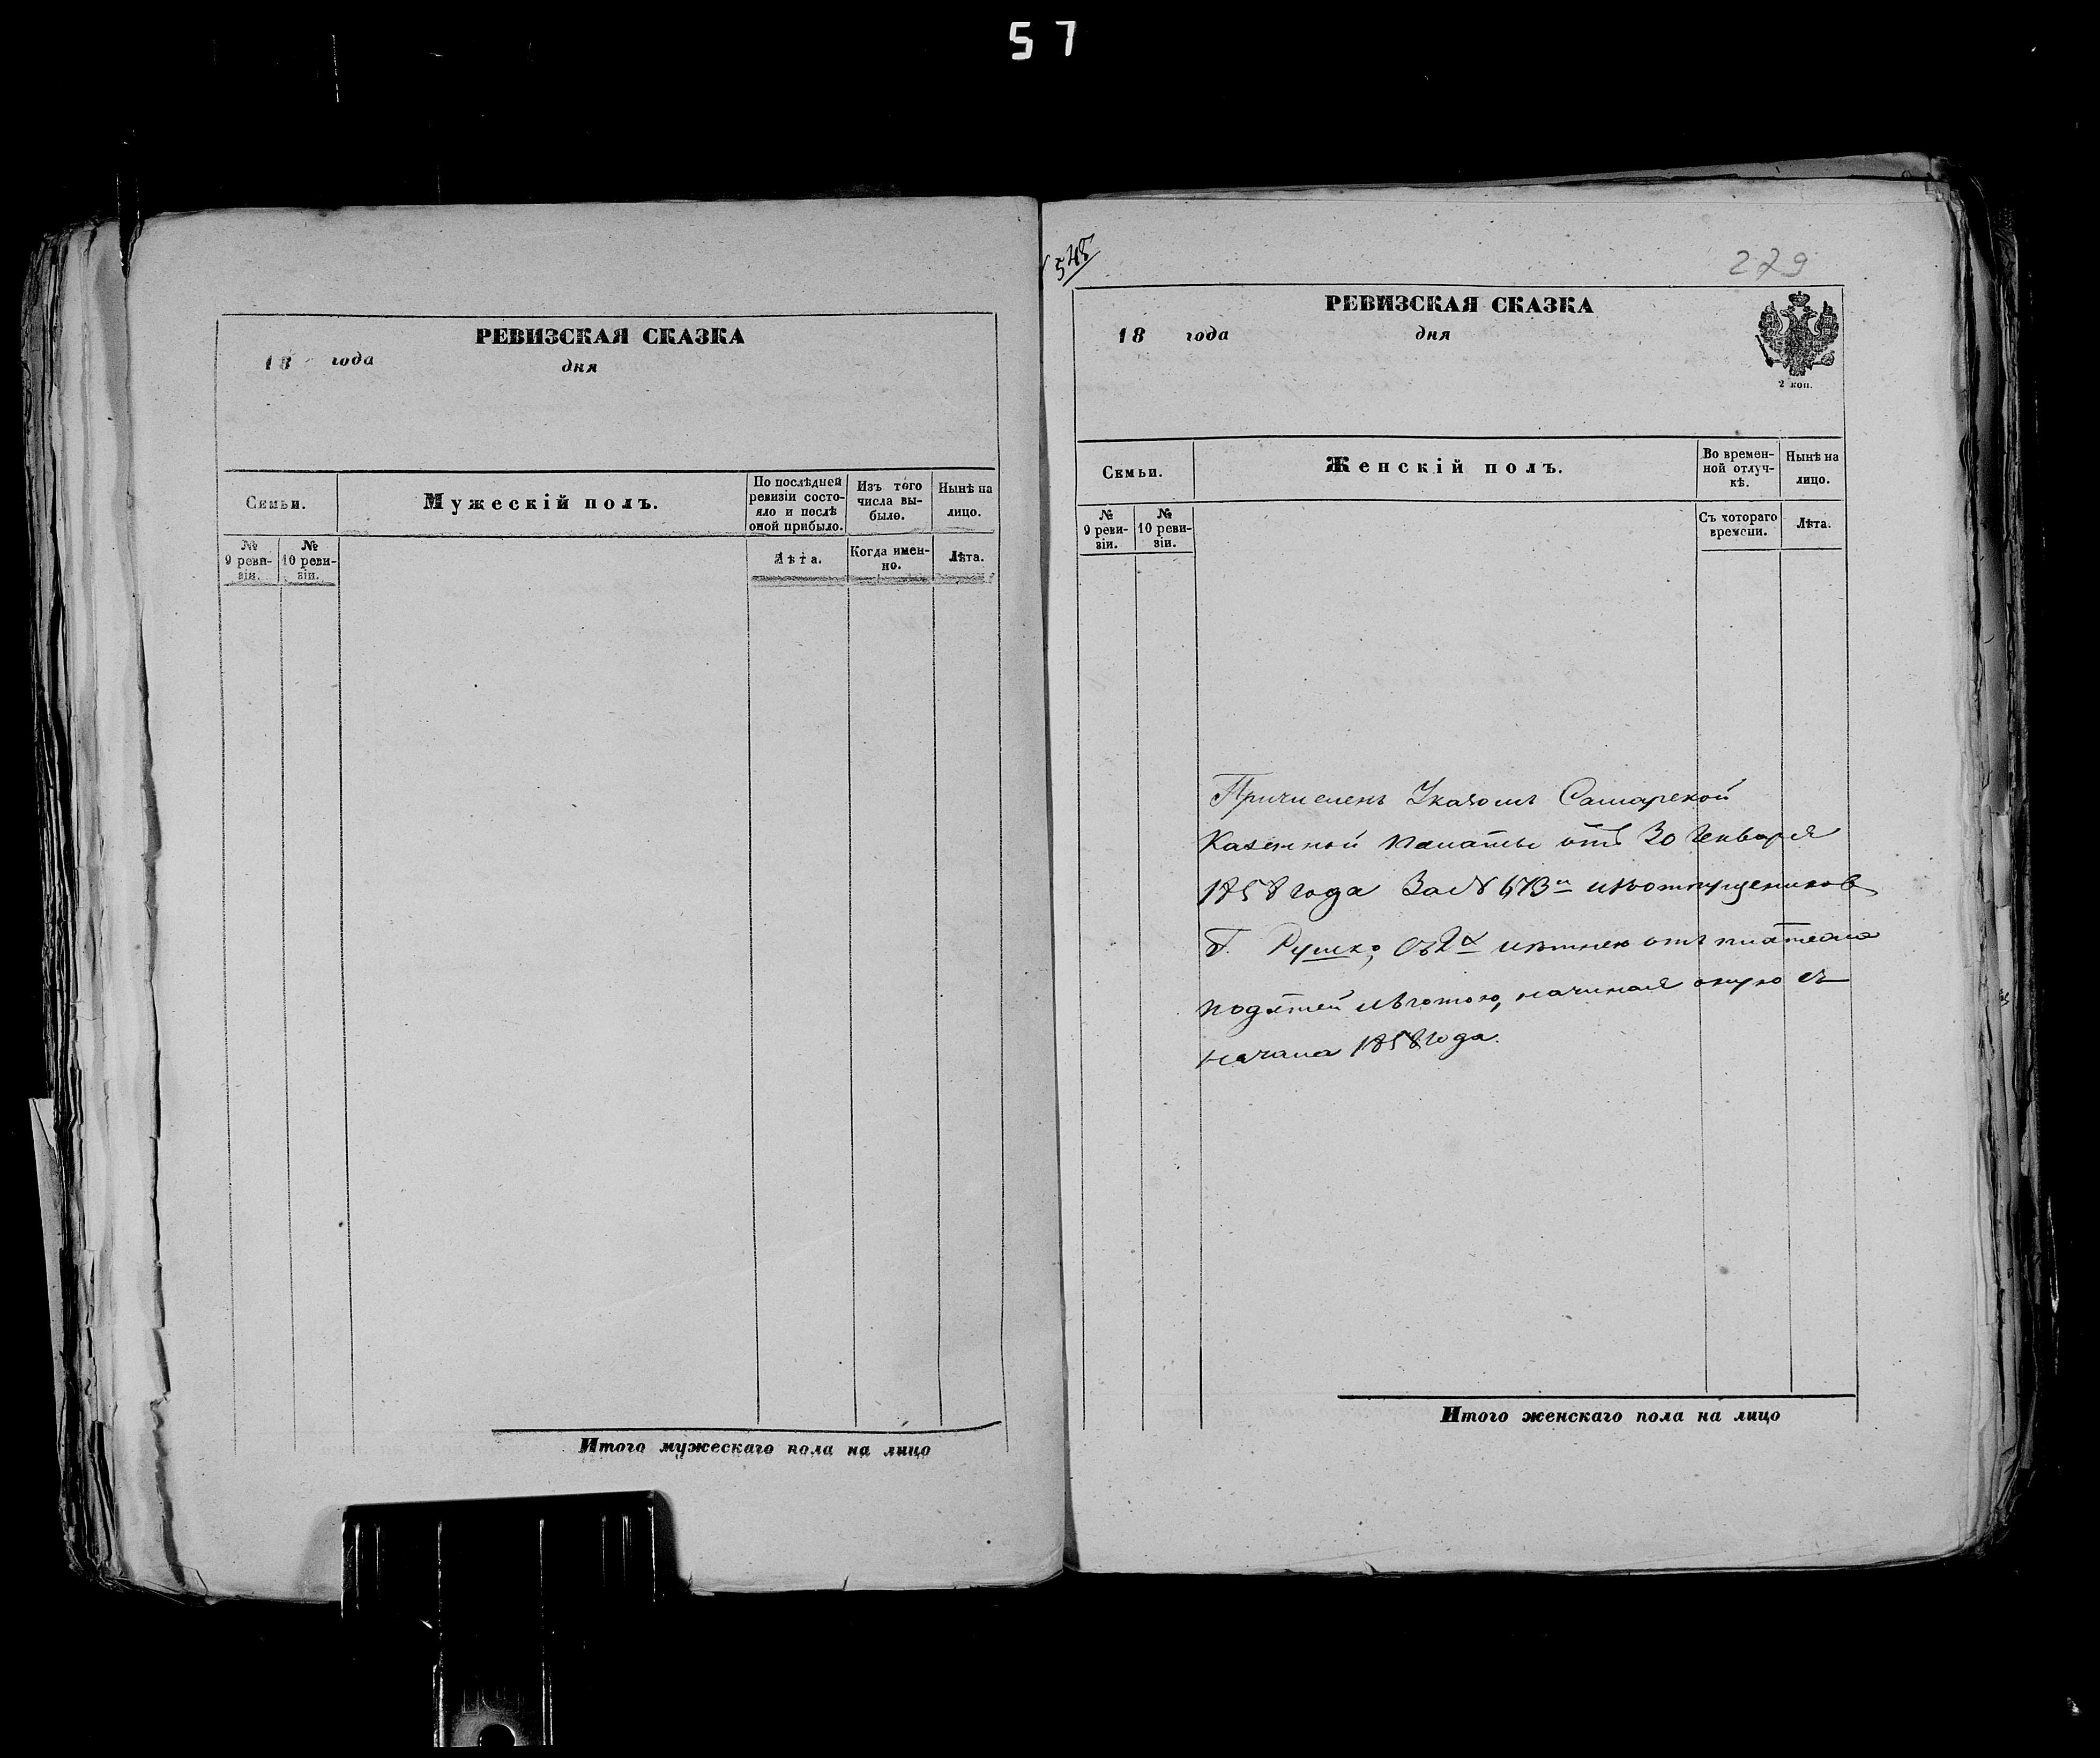 57
РЕВИЗСКАЯ СКАЗКА
18 года дня
Семьи.
Мужескій полъ.
По послѣдней ревизіи состояло и послѣ оной прибыло.
Изъ того числа выбыло.
Нынѣ на лицо.
№ 9 ревизіи.
№ 10 ревизіи.
Лѣта.
Когда именно.
Лѣта.
Итого мужескаго пола на лицо
545
279
РЕВИЗСКАЯ СКАЗКА
18 года дня
2 коп.
Семьи.
Женскій полъ.
Во временной отлучкѣ.
Нынѣ на лицо.
№ 9 ревизіи.
№ 10 ревизіи.
Съ котораго времени.
Лѣта.
Причисленъ Указомъ Самарской
Казенной Палаты отъ 30 Генваря
1858 года За № 673м
Г. съ 2х лѣтнею отъ платежа
податей льготою, начиная оную съ
начала 1858 года.
Итого женскаго пола на лицо